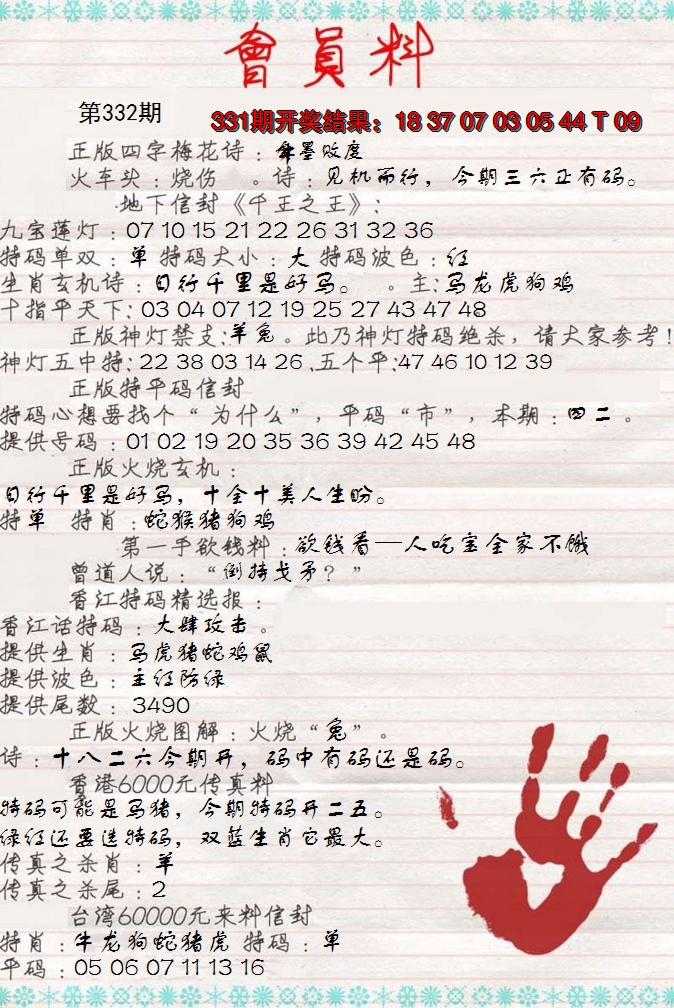 會員料
第332期
331期开奖结果：18 37 07 03 05 44 T 09
正版四字梅花诗：舞墨贩度
火车头：烧伤 。诗：见机而行，今期三六正有码。
地下信封《千王之王》：
九宝莲灯：07 10 15 21 22 26 31 32 36
特码单双：单 特码大小：大 特码波色：红
生肖玄机诗：日行千里是好马。 。主：马龙虎狗鸡
十指平天下：03 04 07 12 19 25 27 43 47 48
正版神灯禁支：羊兔。此乃神灯特码绝杀，请大家参考！
神灯五中特：22 38 03 14 26 .五个平：47 46 10 12 39
正版特平码信封
特码心想要找个“为什么”，平码“市”，本期：四二。
提供号码：01 02 19 20 35 36 39 42 45 48
正版火烧玄机：
日行千里是好马，十全十美人生盼。
特单 特肖：蛇猴猪狗鸡
第一手欲钱料：欲钱看—人吃宝全家不饿
曾道人说：“倒持戈矛？”
香江特码精选报：
香江话特码：大肆攻击。
提供生肖：马虎猪蛇鸡鼠
提供波色：主红防绿
提供尾数：3490
正版火烧图解：火烧“兔”。
诗：十八二六今期开，码中有码还是码。
香港6000元传真料
特码可能是马猪，今期特码开二五。
绿红还要选特码，双蓝生肖它最大。
传真之杀肖：羊
传真之杀尾：2
台湾60000元来料信封
特肖：牛龙狗蛇猪虎 特码：单
平码：05 06 07 11 13 16